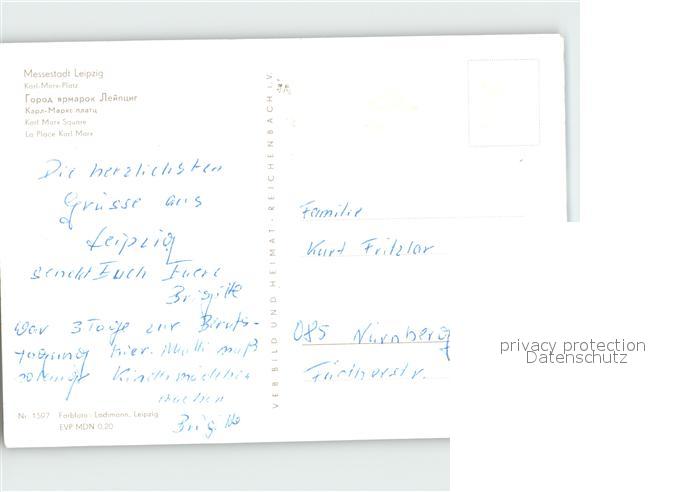 Messestadt Leipzig
Karl-Marx-Platz
Город ярмарок Лейпциг
Карл-Маркс-платц
Karl Marx Square
La Place Karl Marx
Die herzlichsten
Grüsse aus
Leipzig
sendet Euch Eure
Brigitte
War 3 Tage zur Berufs-
tagung hier. Mutti muß
solange Kindermädchen
machen
Brigitte
Nr. 1597 Farbfoto: Lachmann, Leipzig
EVP MDN 0,20
VEB BILD UND HEIMAT · REICHENBACH I. V.
Familie
Kurt Fritzlar
085 Nürnberg
Fürtherstr.
privacy protection
Datenschutz